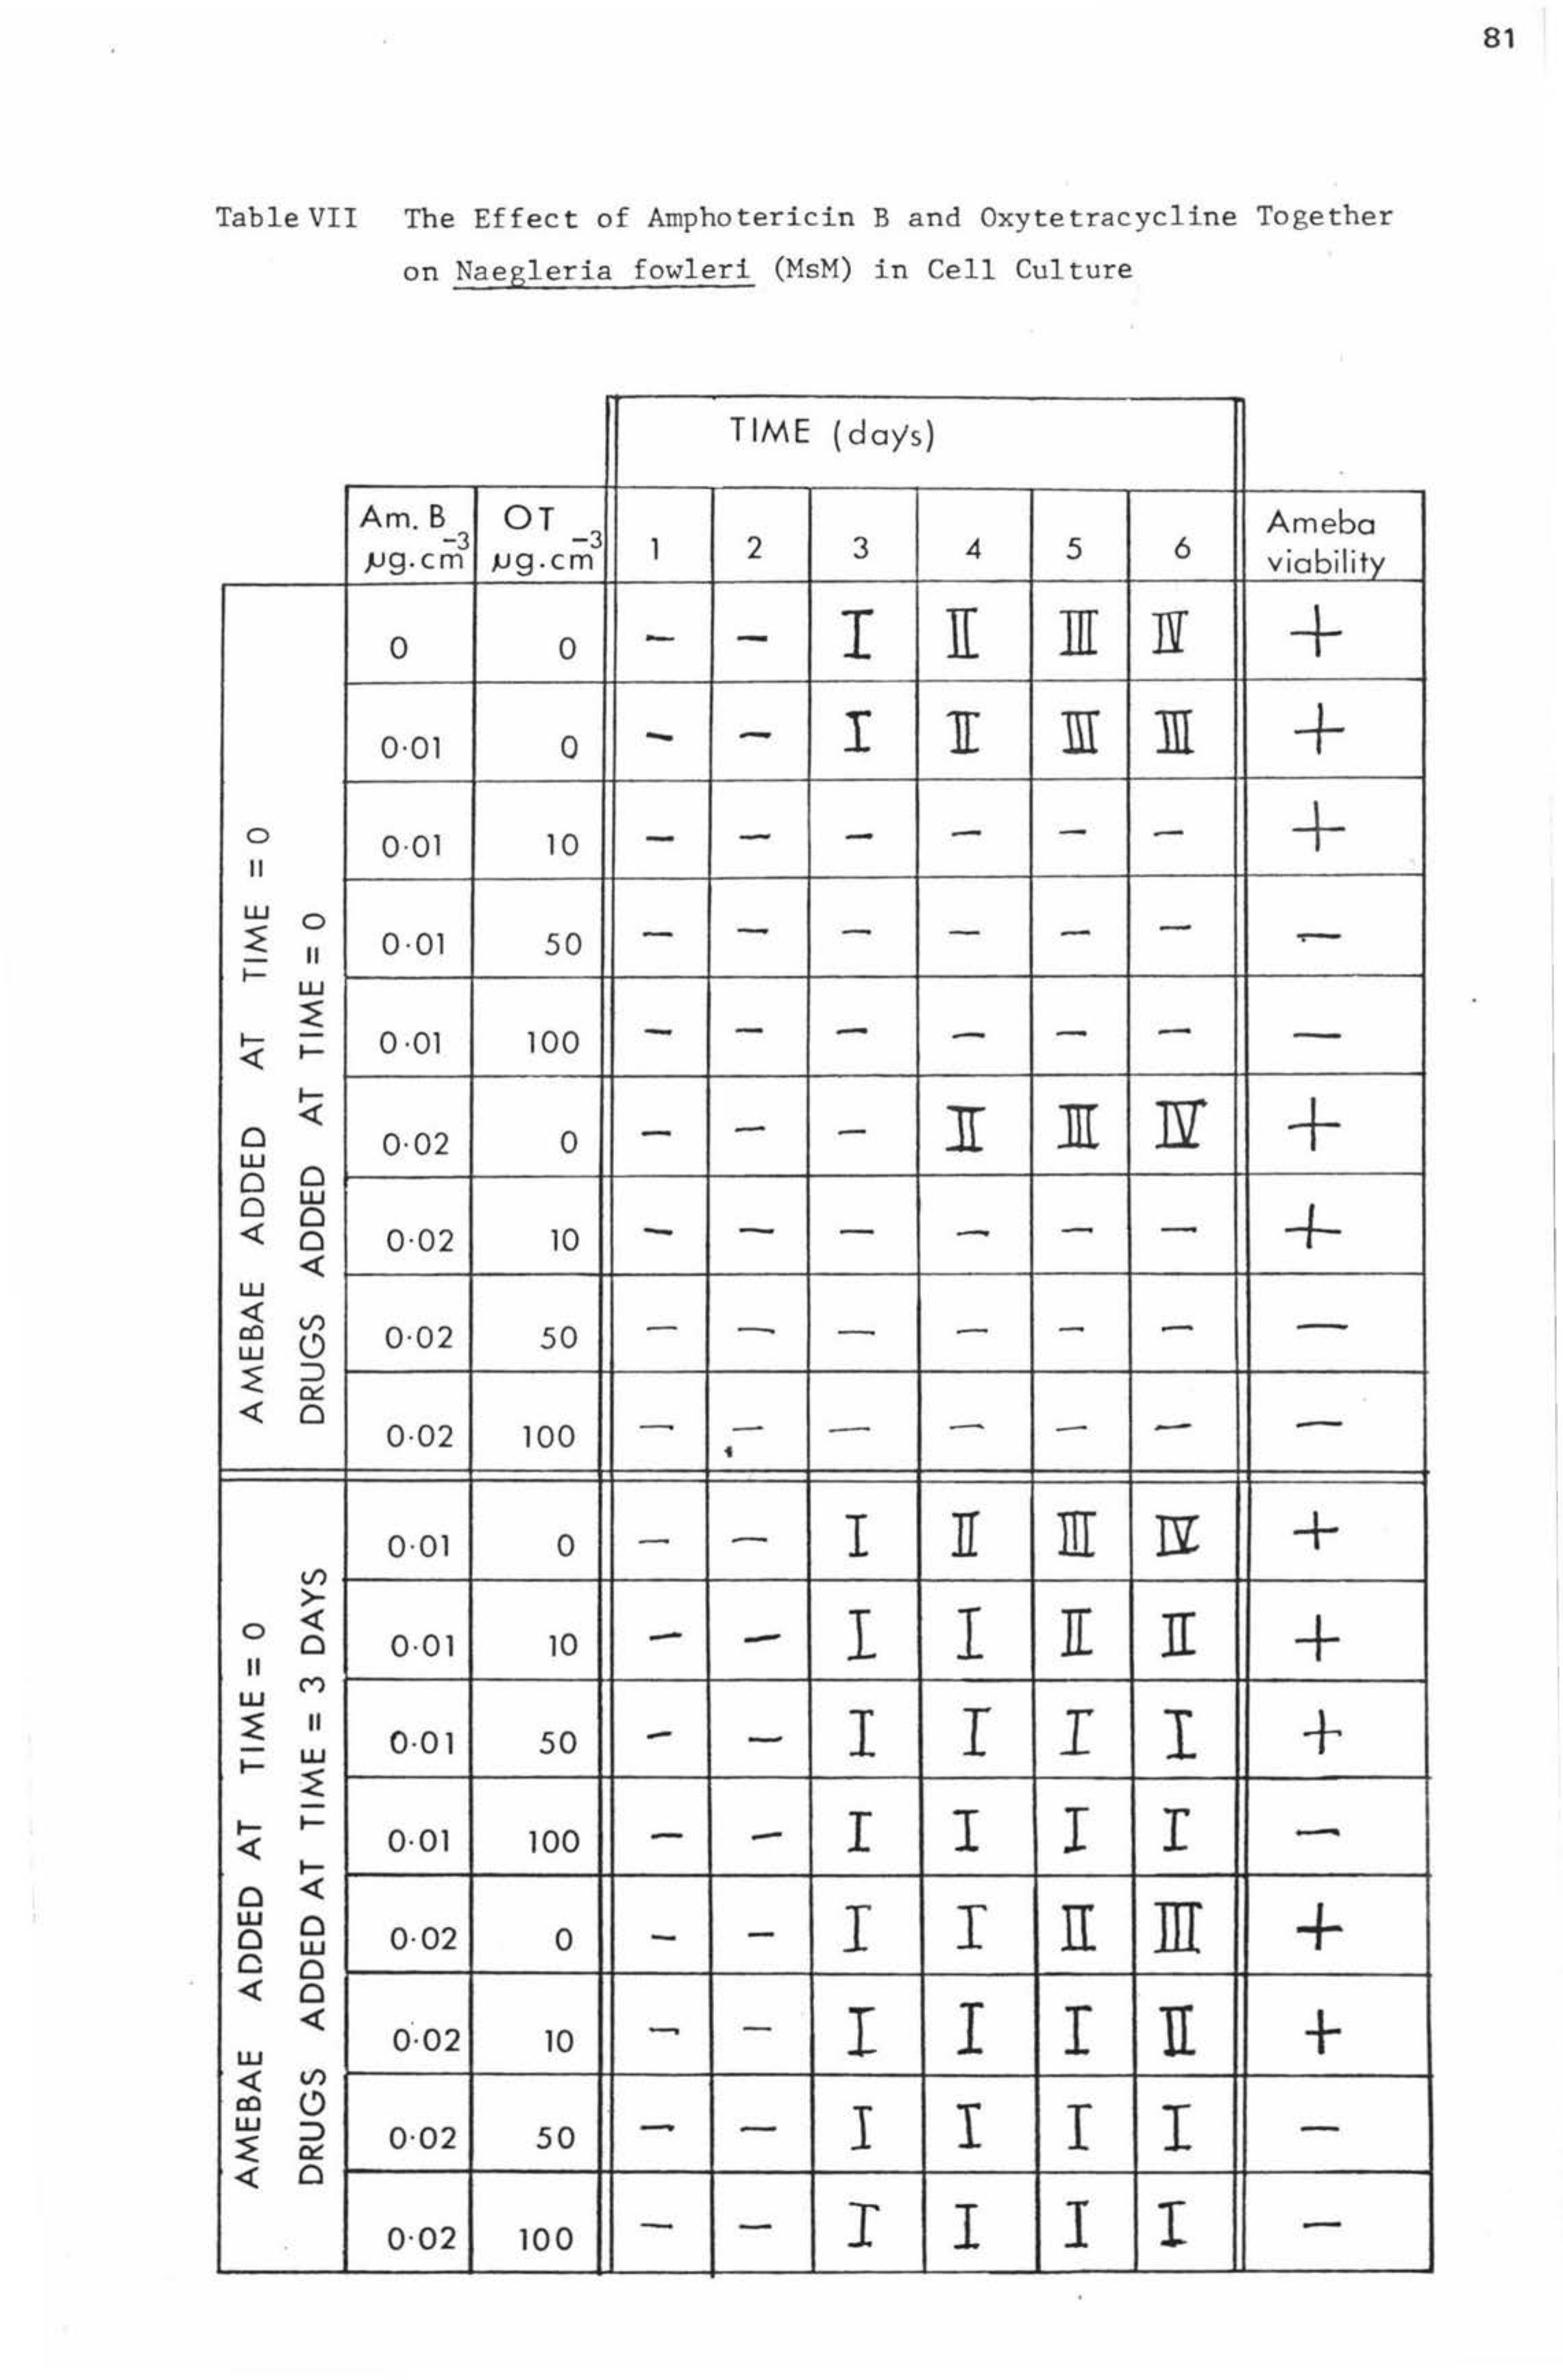 81
Table VII The Effect of Amphotericin B and Oxytetracycline Together
on Naegleria fowleri (MsM) in Cell Culture
TIME (days)
Am. B µg.cm⁻³ OT µg.cm⁻³ 1 2 3 4 5 6 Ameba viability
AMEBAE ADDED AT TIME = 0
DRUGS ADDED AT TIME = 0
0 0 – – I II III IV +
0·01 0 – – I II III III +
0·01 10 – – – – – – +
0·01 50 – – – – – – –
0·01 100 – – – – – – –
0·02 0 – – – II III IV +
0·02 10 – – – – – – +
0·02 50 – – – – – – –
0·02 100 – – – – – – –
AMEBAE ADDED AT TIME = 0
DRUGS ADDED AT TIME = 3 DAYS
0·01 0 – – I II III IV +
0·01 10 – – I I II II +
0·01 50 – – I I I I +
0·01 100 – – I I I I –
0·02 0 – – I I II III +
0·02 10 – – I I I II +
0·02 50 – – I I I I –
0·02 100 – – I I I I –